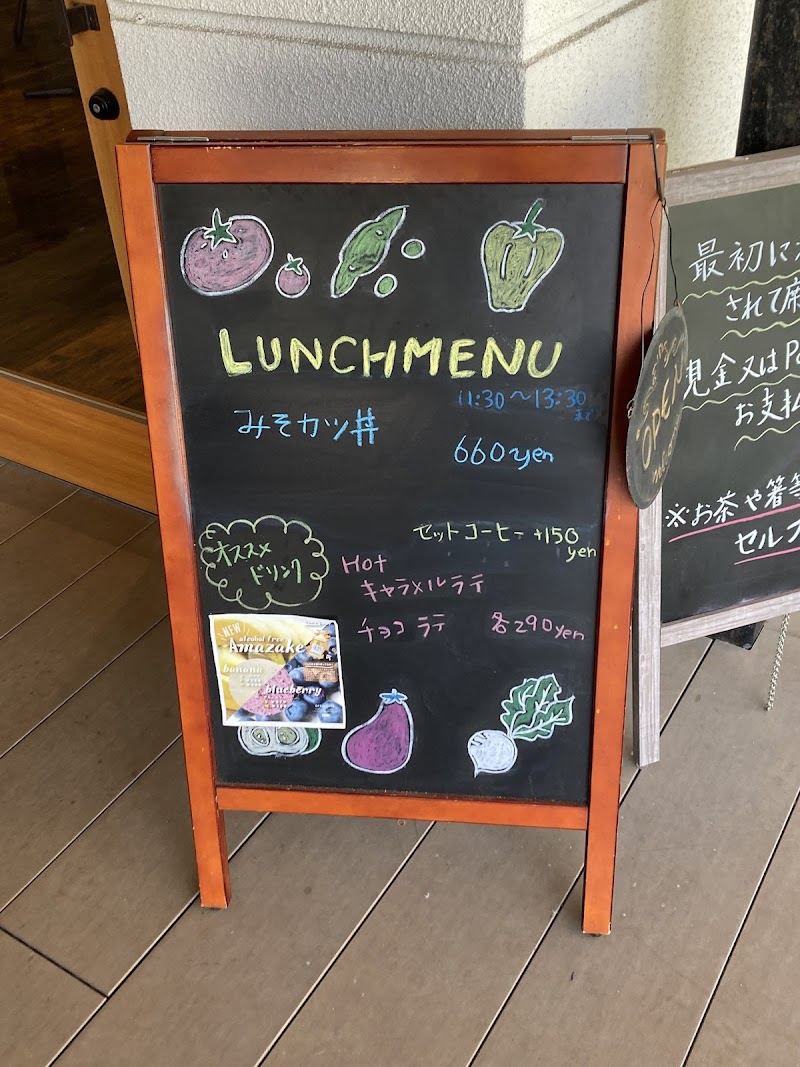 LUNCHMENU
11:30〜13:30
まで
みそカツ丼
660yen
セットコーヒー +150
yen
オススメ
ドリンク
Hot
キャラメルラテ
チョコラテ 各290yen
NEW
alcohol free
Amazake
banana
blueberry
OPEN
最初に
されて席
現金又はPa
お支払
※お茶や箸等
セルフ